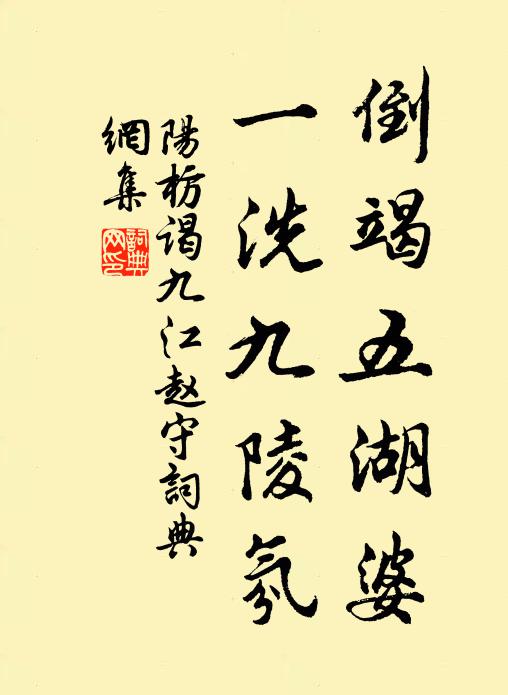 倒竭五湖婆
一洗九陵氛
陽枋谒九江赵守詞典
網集
詞典
网印